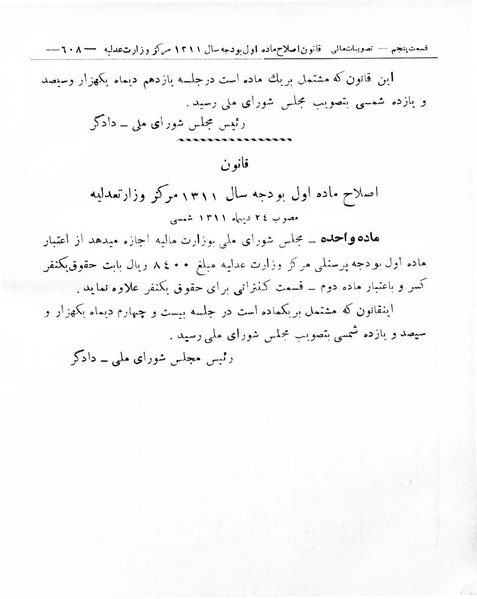 قسمت پنجم — تصویبات مالی قانون اصلاح ماده اول بودجه سال ۱۳۱۱ مرکز وزارت عدلیه —۶۰۸—
این قانون که مشتمل بر یك ماده است در جلسه یازدهم دیماه یکهزار وسیصد
و یازده شمسی بتصویب مجلس شورای ملی رسید .
رئیس مجلس شورای ملی ـ دادگر
قانون
اصلاح ماده اول بودجه سال ۱۳۱۱ مرکز وزارتعدلیه
مصوب ۲٤ دیماه ۱۳۱۱ شمسی
ماده واحده ـ مجلس شورای ملی بوزارت مالیه اجازه میدهد از اعتبار
ماده اول بودجه پرسنلی مرکز وزارت عدلیه مبلغ ۸٤۰۰ ریال بابت حقوق یکنفر
کسر و باعتبار ماده دوم ـ قسمت کنتراتی برای حقوق یکنفر علاوه نماید .
اینقانون که مشتمل بریکماده است در جلسه بیست و چهارم دیماه یکهزار و
سیصد و یازده شمسی بتصویب مجلس شورای ملی رسید .
رئیس مجلس شورای ملی ـ دادگر